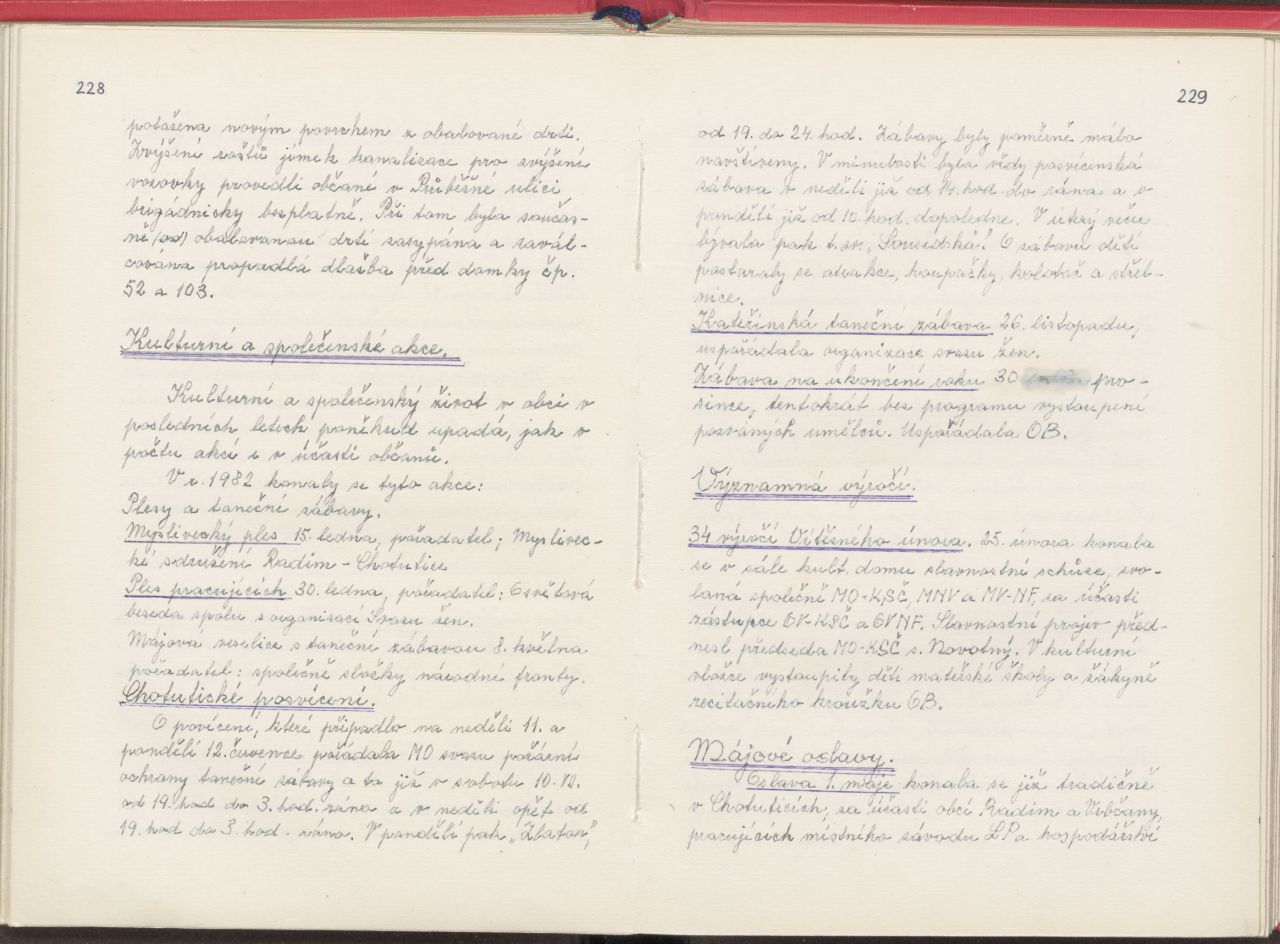 228
potažena novým povrchem z obalované drti.
Zvýšení roštů jímek kanalizace pro zvýšení
vozovky provedli občané v Průběžné ulici
brigádnicky bezplatně. Při tom byla součas-
ně (od) obalovanou drtí zasypána a zavál-
cována propadlá dlažba před domky čp.
52 a 103.
Kulturní a společenské akce.
Kulturní a společenský život v obci v
posledních letech poněkud upadá, jak v
počtu akcí i v účasti občanů.
V r. 1982 konaly se tyto akce:
Plesy a taneční zábavy.
Myslivecký ples 15. ledna, pořadatel; Myslivec-
ké sdružení Radim - Chotutice
Ples pracujících 30. ledna, pořadatel: Osvětová
beseda spolu s organisací Svazu žen.
Májová veselice s taneční zábavou 8. května
pořadatel: společně složky národní fronty.
Chotutické posvícení.
O povícení, které připadlo na neděli 11. a
pondělí 12. července pořádala MO svazu požární
ochrany taneční zábavy a to již v sobotu 10. VII.
od 19. hod do 3. hod. ráno a v neděli opět od
19. hod do 3 hod. ráno. V pondělí pak „Zlatou",
229
od 19. do 24. hod. Zábavy byly poměrně málo
navštíveny. V minulosti byla vždy posvícenská
zábava v neděli již od 14. hod. do rána a v
pondělí již od 10. hod. dopoledne. V úterý večer
bývala pak t. zv. „Sousedská". O zábavu dětí
postaraly se atrakce, houpačky, kolotoč a střel-
nice.
Kateřinská taneční zábava 26. listopadu,
uspořádala organizace svazu žen.
Zábava na ukončení roku 30 pro-
since, tentokrát bez programu vystoupení
pozvaných umělců. Uspořádala OB.
Významná výročí.
34 výročí Vítězného února. 25. února konala
se v sále kult. domu slavnostní schůze, svo-
laná společně MO-KSČ, MNV a MV-NF, za účasti
zástupce OV-KSČ a OVNF. Slavnostní projev před-
nesl předseda MO-KSČ s. Novotný. V kulturní
vložce vystoupily děti mateřské školy a žákyně
recitačního kroužku OB.
Májové oslavy.
Oslava 1. máje konala se již tradičně
v Chotuticích, za účasti obcí Radim a Vrbčany,
pracujících místního závodu LP a hospodářství